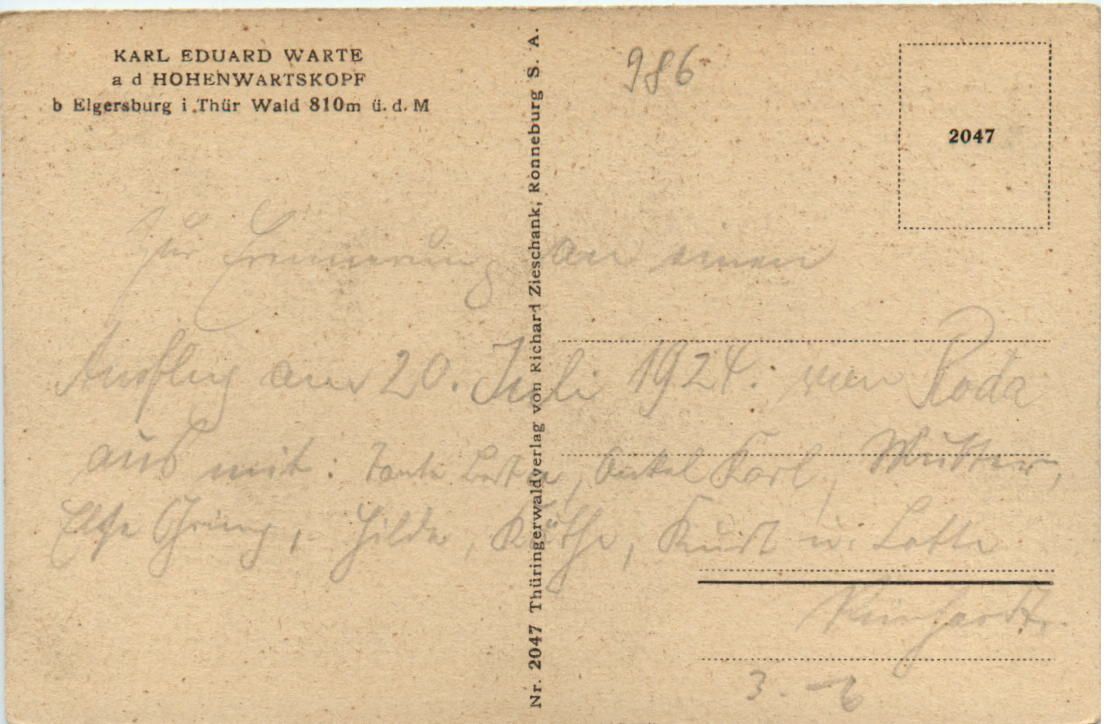 KARL EDUARD WARTE
a d HOHENWARTSKOPF
b Elgersburg i. Thür Wald 810m ü. d. M
986
2047
Nr. 2047 Thüringerwaldverlag von Richard Zieschank, Ronneburg S. A.
Zur Erinnerung an einen
Ausflug am 20. Juli 1924. von Roda
aus mit: Tante Berta, Onkel Karl, Mutter,
Else, Hilde, Käthe, Kurt u. Lotte
Reinhardt.
3.